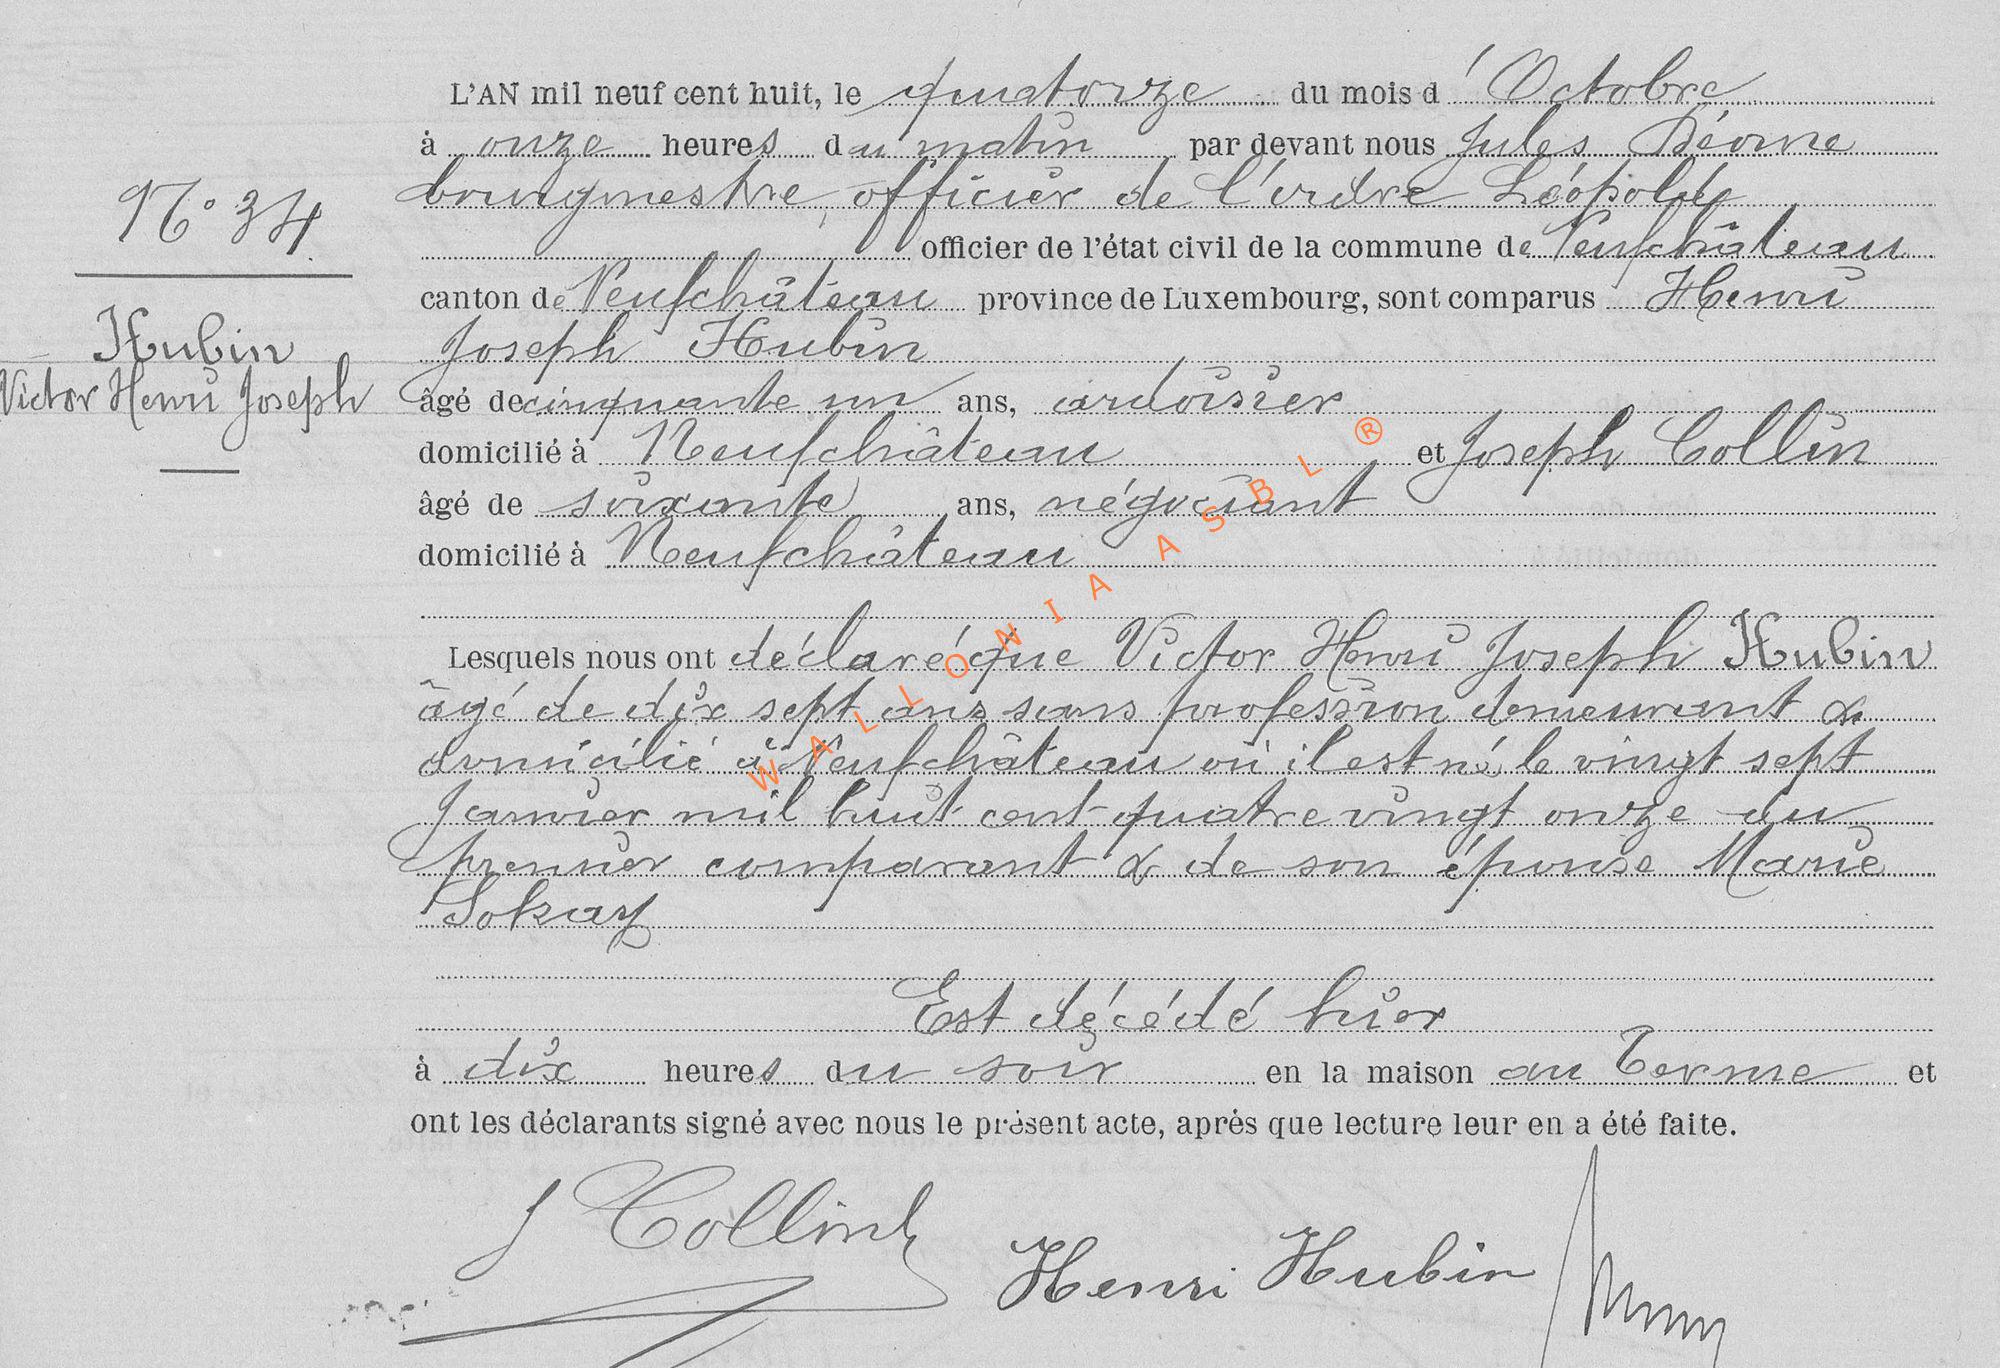 L'AN mil neuf cent huit, le quatorze du mois d'Octobre
à onze heures du matin par devant nous Jules
bourgmestre, officier de l'ordre Léopold
officier de l'état civil de la commune de Neufchâteau
canton de Neufchâteau province de Luxembourg, sont comparus Henri
Joseph Hubin
âgé de cinquante un ans, ardoisier
domicilié à Neufchâteau et Joseph Collin
âgé de soixante ans, négociant
domicilié à Neufchâteau
Lesquels nous ont déclaré que Victor Henri Joseph Hubin
âgé de dix sept ans sans profession demeurant &
domicilié à Neufchâteau où il est né le vingt sept
Janvier mil huit cent quatre vingt onze du
premier comparant & de son épouse Marie
Sokay
Est décédé hier
à dix heures du soir en la maison au Terme et
ont les déclarants signé avec nous le présent acte, après que lecture leur en a été faite.
N° 34
Hubin
Victor Henri Joseph
J Collin
Henri Hubin
WALLONIA ASBL ®